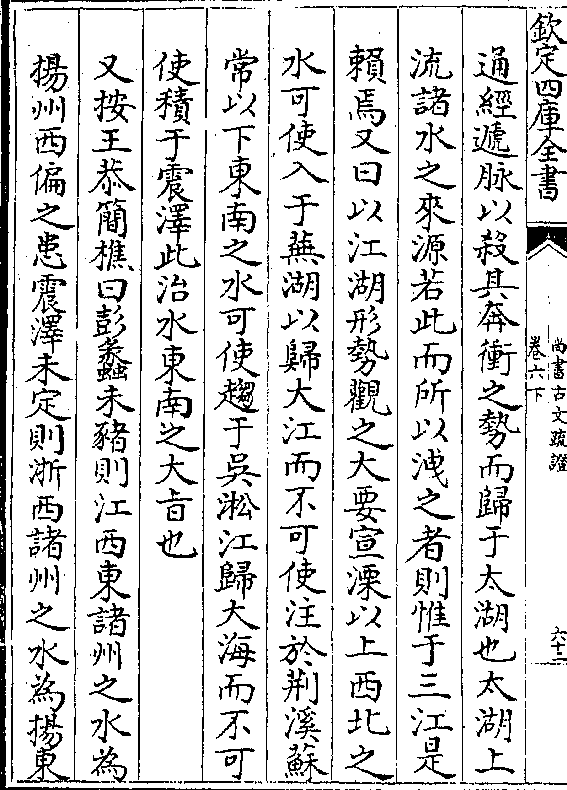 欽定四庫全書
尚書古文疏證
卷六下
六十二
通經遞脉以殺其奔衝之勢而歸于太湖也太湖上
流諸水之來源若此而所以洩之者則惟于三江是
賴焉又曰以江湖形勢觀之大要宣溧以上西北之
水可使入于蕪湖以歸大江而不可使注於荆溪蘇
常以下東南之水可使趨于吳淞江歸大海而不可
使積于震澤此治水東南之大旨也
又按王恭簡樵曰彭蠡未豬則江西東諸州之水為
揚州西偏之患震澤未定則浙西諸州之水為揚東